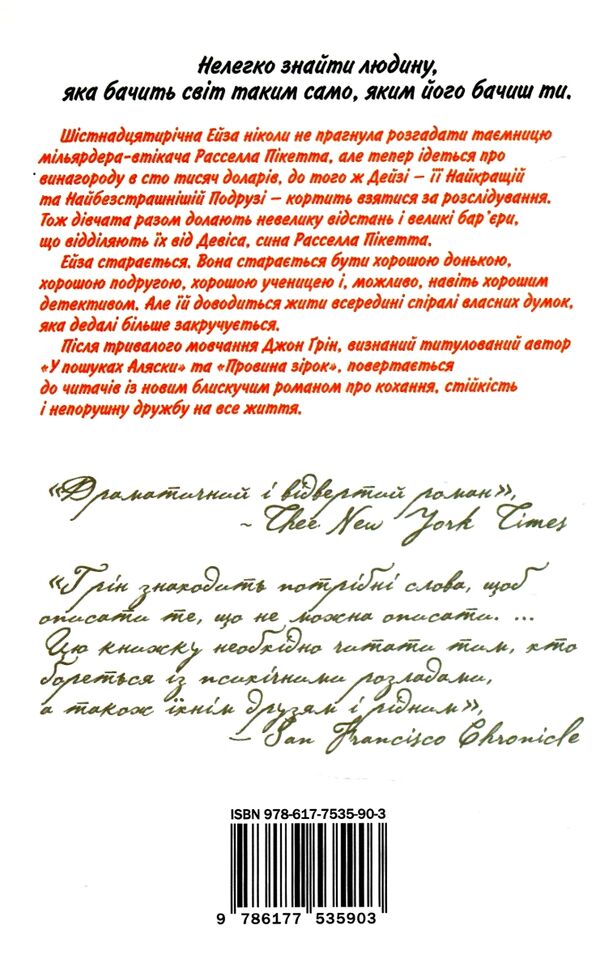 Нелегко знайти людину,
яка бачить світ таким само, яким його бачиш ти.
Шістнадцятирічна Ейза ніколи не прагнула розгадати таємницю
мільярдера-втікача Расселла Пікетта, але тепер ідеться про
винагороду в сто тисяч доларів, до того ж Дейзі – її Найкращій
та Найбезстрашнішій Подрузі – кортить взятися за розслідування.
Тож дівчата разом долають невелику відстань і великі бар'єри,
що відділяють їх від Девіса, сина Расселла Пікетта.
Ейза старається. Вона старається бути хорошою донькою,
хорошою подругою, хорошою ученицею і, можливо, навіть хорошим
детективом. Але їй доводиться жити всередині спіралі власних думок,
яка дедалі більше закручується.
Після тривалого мовчання Джон Ґрін, визнаний титулований автор
«У пошуках Аляски» та «Провина зірок», повертається
до читачів із новим блискучим романом про кохання, стійкість
і непорушну дружбу на все життя.
«Драматичний і відвертий роман»,
~ Thee New York Times
«Ґрін знаходить потрібні слова, щоб
описати те, що не можна описати. ...
Цю книжку необхідно читати тим, хто
бореться із психічними розладами,
а також їхнім друзям і рідним»,
– San Francisco Chronicle
ISBN 978-617-7535-90-3
9 786177 535903